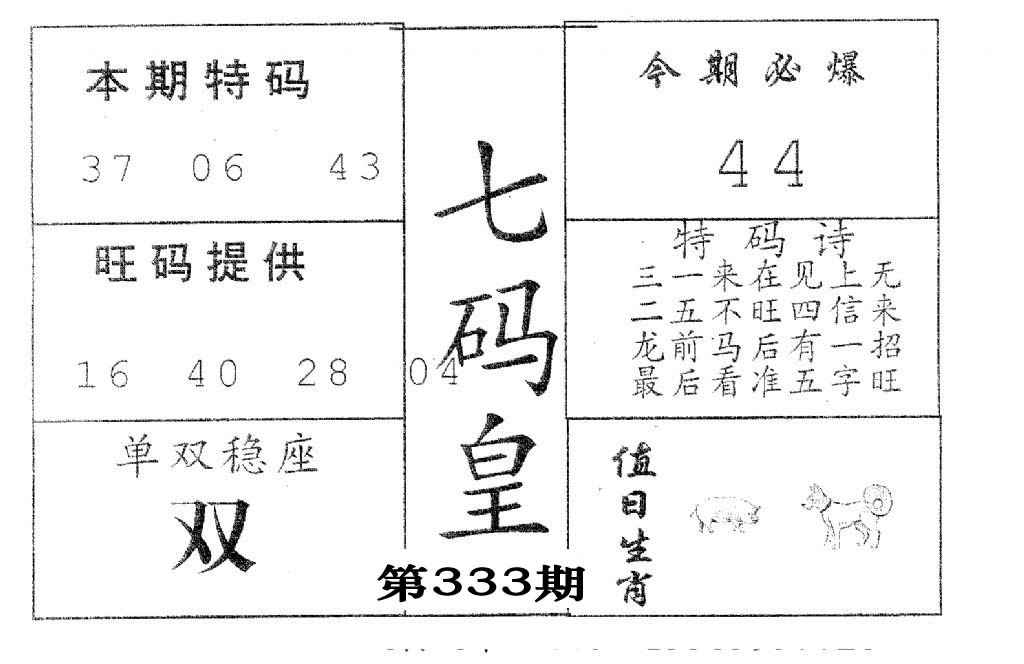 本期特码
37 06 43
旺码提供
16 40 28 04
单双稳座
双
七码皇
第333期
今期必爆
44
特码诗
三一来在见上无
二五不旺四信来
龙前马后有一招
最后看准五字旺
值日生肖